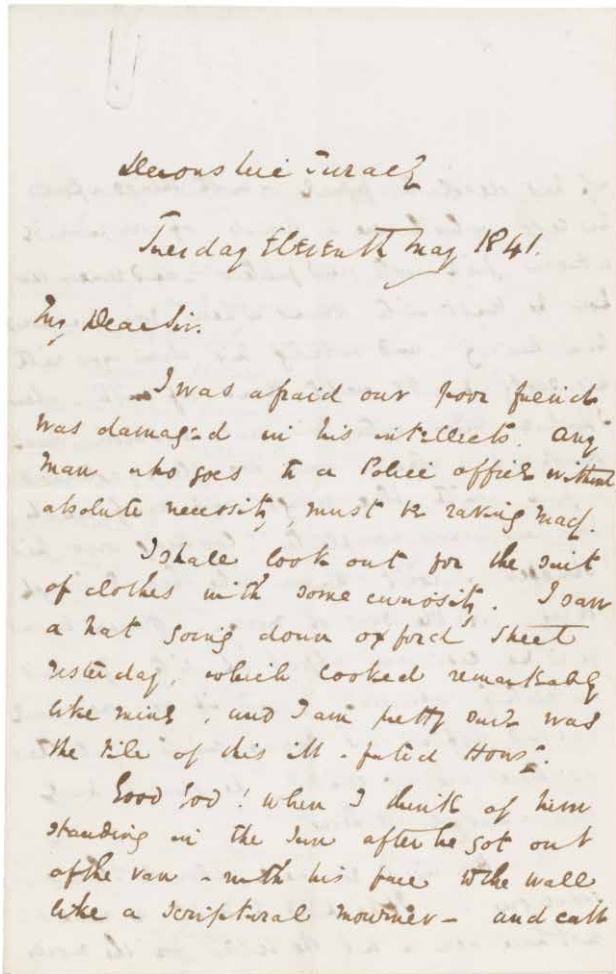 Devonshire Terrace
Tuesday Eleventh May 1841.
My Dear Sir.
I was afraid our poor friend
was damaged in his intellects. Any
man who goes to a Police office without
absolute necessity, must be raving mad.
I shall look out for the suit
of clothes with some curiosity. I saw
a hat going down Oxford Street
yesterday, which looked remarkably
like mine, and I am pretty sure was
the tile of this ill-fated
Good God! when I think of him
standing in the Sun after he got out
of the van - with his face to the wall
like a Scriptural mourner - and call